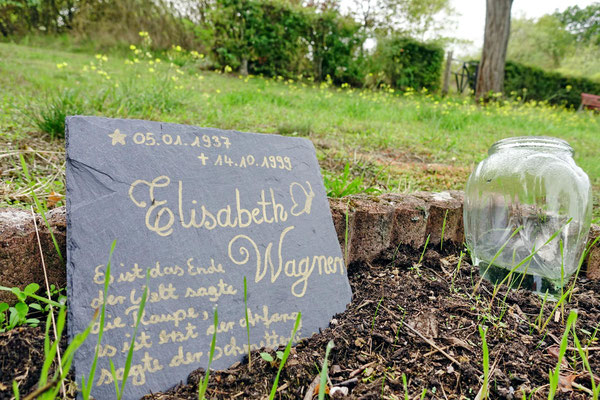 ★ 05.01.1937
✝ 14.10.1999
Elisabeth
Wagner
Es ist das Ende
der Welt sagte
die Raupe,
es ist erst der Anfang
sagte der Schmette